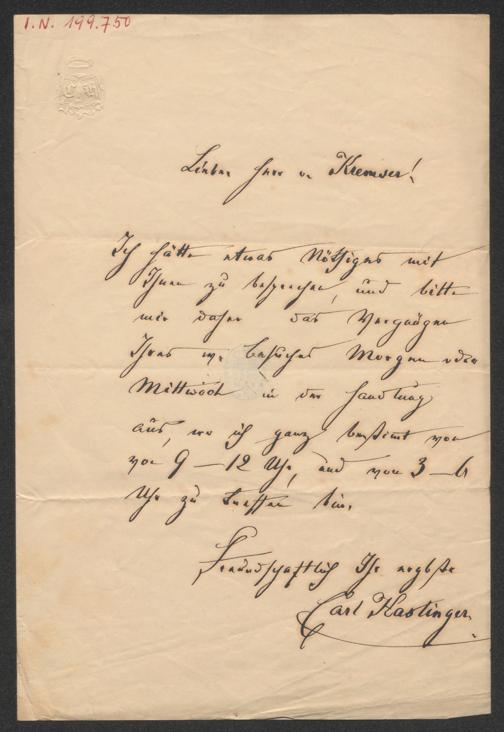 I.N. 199.750
Lieber Herr v. Kremser!
Ich hätte etwas Nöthiges mit
Ihnen zu besprechen, und bitte
mir daher das Vergnügen
Ihres w. Besuches Morgen oder
Mittwoch in der Handlung
aus, wo ich ganz bestimt von
von 9 — 12 Uhr, und von 3 — 6
Uhr zu treffen bin.
Freundschaftlich Ihr ergbste
Carl Haslinger